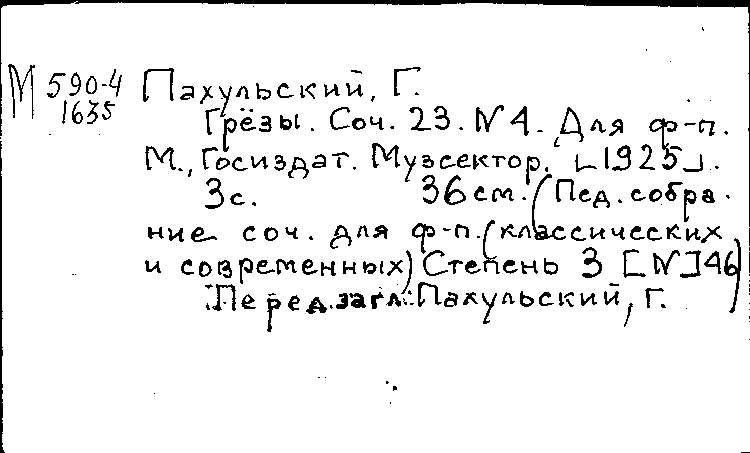 М 590-4 Пахульский, Г.
1635
Грёзы. Соч. 23. N 4. Для ф-п.
М., Госиздат. Музсектор. [1925].
3 с. 36 см. (Пед. собра-
ние соч. для ф-п. (классических
и современных) Степень 3 [N] 46)
Перед. загл.: Пахульский, Г.